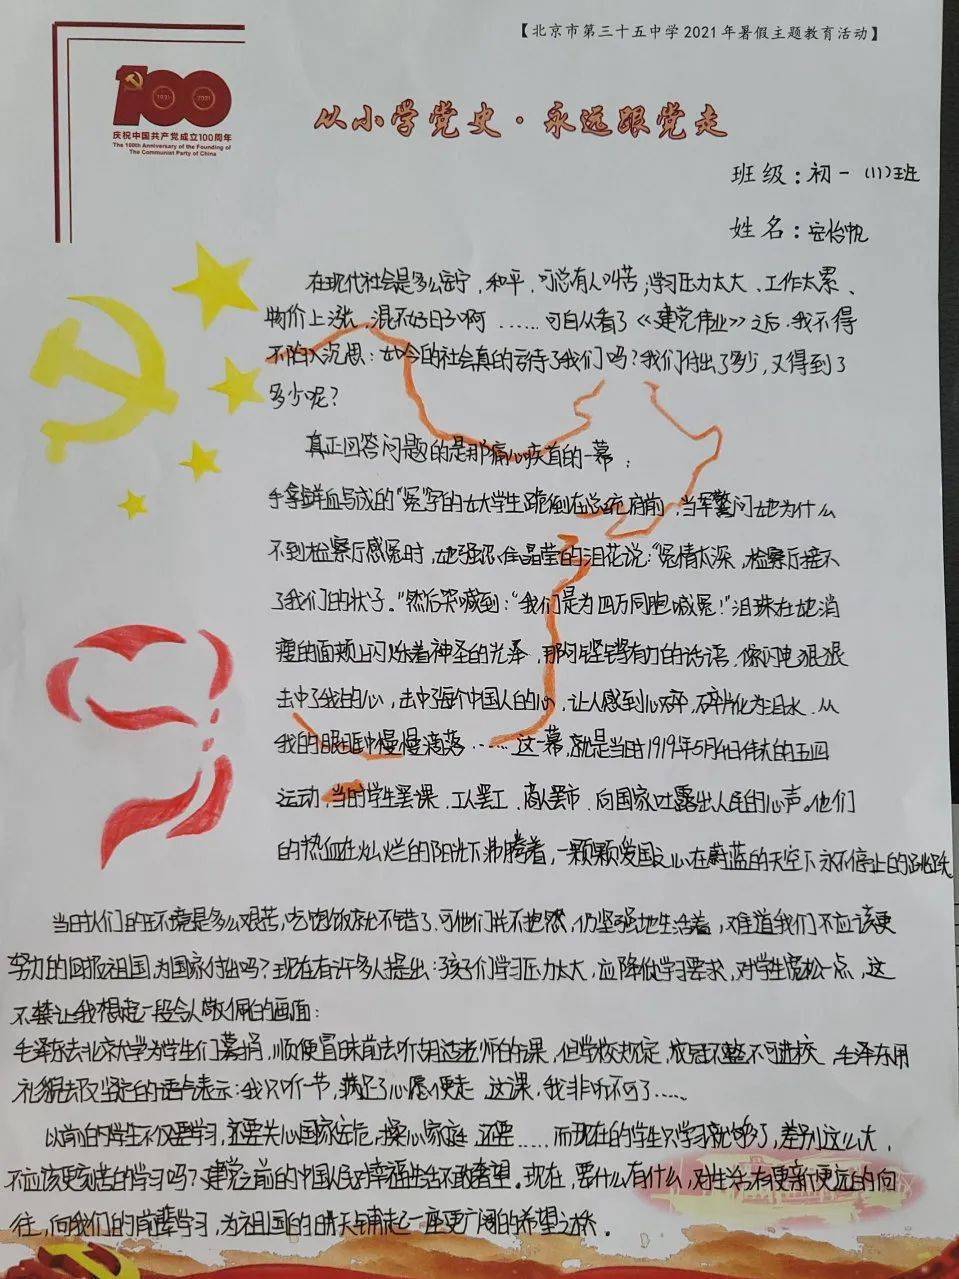 【北京市第三十五中学2021年暑假主题教育活动】
100
1921
2021
庆祝中国共产党成立100周年
The 100th Anniversary of the Founding of
The Communist Party of China
从小学党史·永远跟党走
班级:初一(11)班
姓名:安怡帆
在现代社会是多么安宁、和平,可总有人叫苦;学习压力太大、工作太累、
物价上涨,混不好日子啊……可自从看了《建党伟业》之后,我不得
不陷入沉思:如今的社会真的亏待了我们吗?我们付出了多少,又得到了
多少呢?
真正回答问题的是那痛心疾首的一幕:
手拿鲜血写成的“冤”字的女大学生跪倒在总统府前,当军警问她为什么
不到检察厅感冤时,她强忍住晶莹的泪花说:“冤情太深,检察厅接不
了我们的状子。”然后哭喊到:“我们是为四万同胞喊冤!”泪珠在她消
瘦的面颊上闪烁着神圣的光泽,那句铿锵有力的话语,像闪电狠狠
击中了我的心,击中了每个中国人的心,让人感到心碎,碎片化为泪水,从
我的眼眶中慢慢滴落……这一幕,就是当时1919年5月4日伟大的五四
运动,当时学生罢课、工人罢工、商人罢市,向国家吐露出人民的心声。他们
的热血在灿烂的阳光下沸腾着,一颗颗爱国之心在蔚蓝的天空下永不停止的跳跃
当时人们的环境是多么艰苦,吃饱饭就不错了,可他们并不抱怨,仍坚强地生活着,难道我们不应该更
努力的回报祖国,为国家付出吗?现在有许多人提出:孩子们学习压力太大,应降低学习要求,对学生宽松一点,这
不禁让我想起一段令人敬佩的画面:
毛泽东去北京大学为学生们募捐,顺便冒昧前去听胡适老师的课,但学校规定,衣冠不整不可进校,毛泽东用
礼貌却又坚定的语气表示:我只听一节,满足了心愿便走,这课,我非听不可了……
以前的学生不仅要学习,还要关心国家安危,操心家庭,还要……而现在的学生只学习就够了,差别这么大,
不应该更刻苦的学习吗?建党之前的中国人民对幸福生活不敢奢望。现在,要什么有什么,对生活有更新更远的向
往,向我们的前辈学习,为祖国的明天铺起一座更广阔的希望之桥。